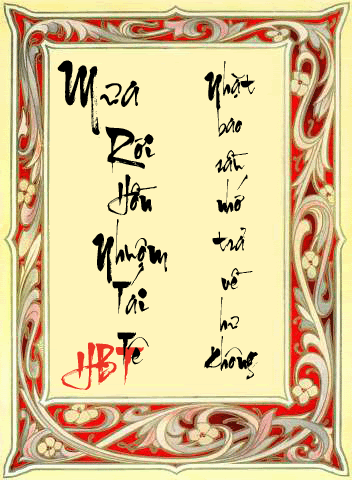 Mưa
Rơi
Hồn
Nhuộm
Tái
Tê
HBT
Nhặt
bao
vần
mớ
trả
về
hư
không